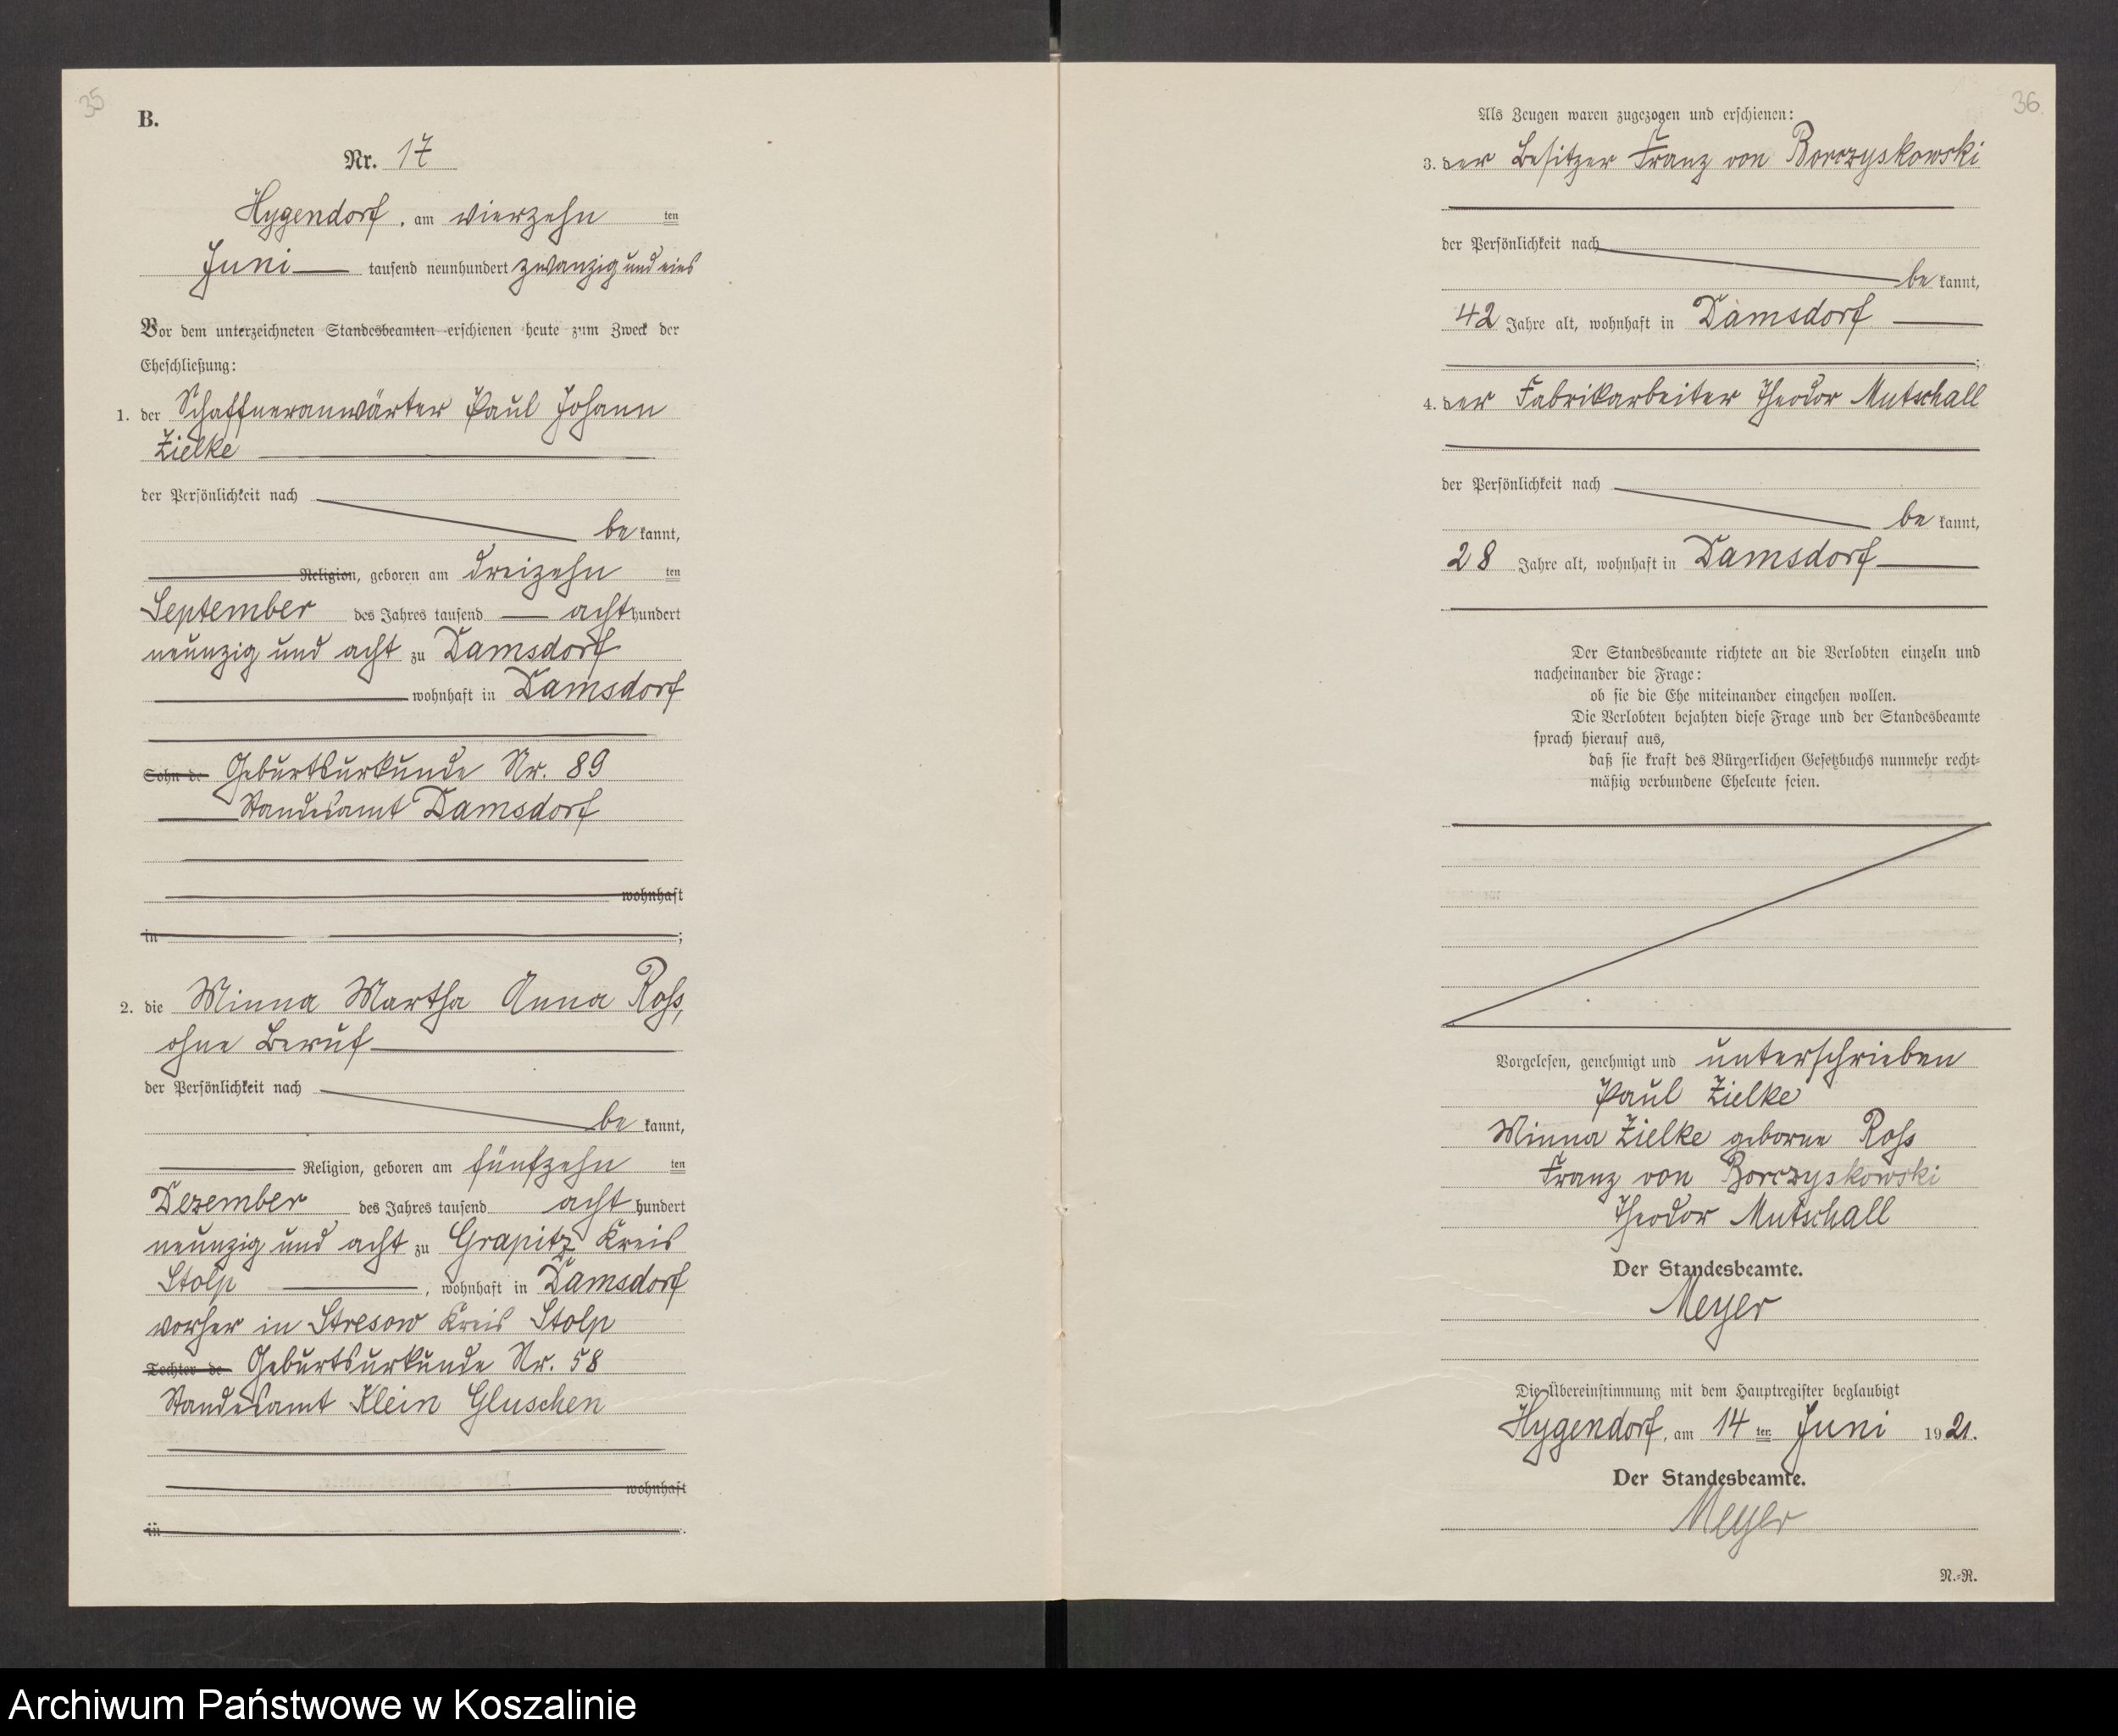 35
B.
Nr. 17
Hygendorf, am vierzehn ten
Juni tausend neunhundert zwanzig und eins
Vor dem unterzeichneten Standesbeamten erschienen heute zum Zweck der
Eheschließung:
1. der Schaffneranwärter Paul Johann
Zielke
der Persönlichkeit nach
be kannt,
Religion, geboren am dreizehn ten
September des Jahres tausend acht hundert
neunzig und acht zu Damsdorf
wohnhaft in Damsdorf
Sohn de Geburtsurkunde Nr. 89
Standesamt Damsdorf
wohnhaft
in ;
2. die Minna Martha Anna Roß,
ohne Beruf
der Persönlichkeit nach
be kannt,
Religion, geboren am fünfzehn ten
Dezember des Jahres tausend acht hundert
neunzig und acht zu Grapitz Kreis
Stolp , wohnhaft in Damsdorf
vorher in Stresow Kreis Stolp
Tochter de Geburtsurkunde Nr. 58
Standesamt Klein Gluschen
wohnhaft
in .
36
Als Zeugen waren zugezogen und erschienen:
3. der Besitzer Franz von Borczyskowski
der Persönlichkeit nach
be kannt,
42 Jahre alt, wohnhaft in Damsdorf
;
4. der Fabrikarbeiter Theodor Mutschall
der Persönlichkeit nach
be kannt,
28 Jahre alt, wohnhaft in Damsdorf
Der Standesbeamte richtete an die Verlobten einzeln und
nacheinander die Frage:
ob sie die Ehe miteinander eingehen wollen.
Die Verlobten bejahten diese Frage und der Standesbeamte
sprach hierauf aus,
daß sie kraft des Bürgerlichen Gesetzbuchs nunmehr recht=
mäßig verbundene Eheleute seien.
Vorgelesen, genehmigt und unterschrieben
Paul Zielke
Minna Zielke geborne Roß
Franz von Borczyskowski
Theodor Mutschall
Der Standesbeamte.
Meyer
Die Übereinstimmung mit dem Hauptregister beglaubigt
Hygendorf, am 14 ten Juni 1921.
Der Standesbeamte.
Meyer
N.=R.
Archiwum Państwowe w Koszalinie